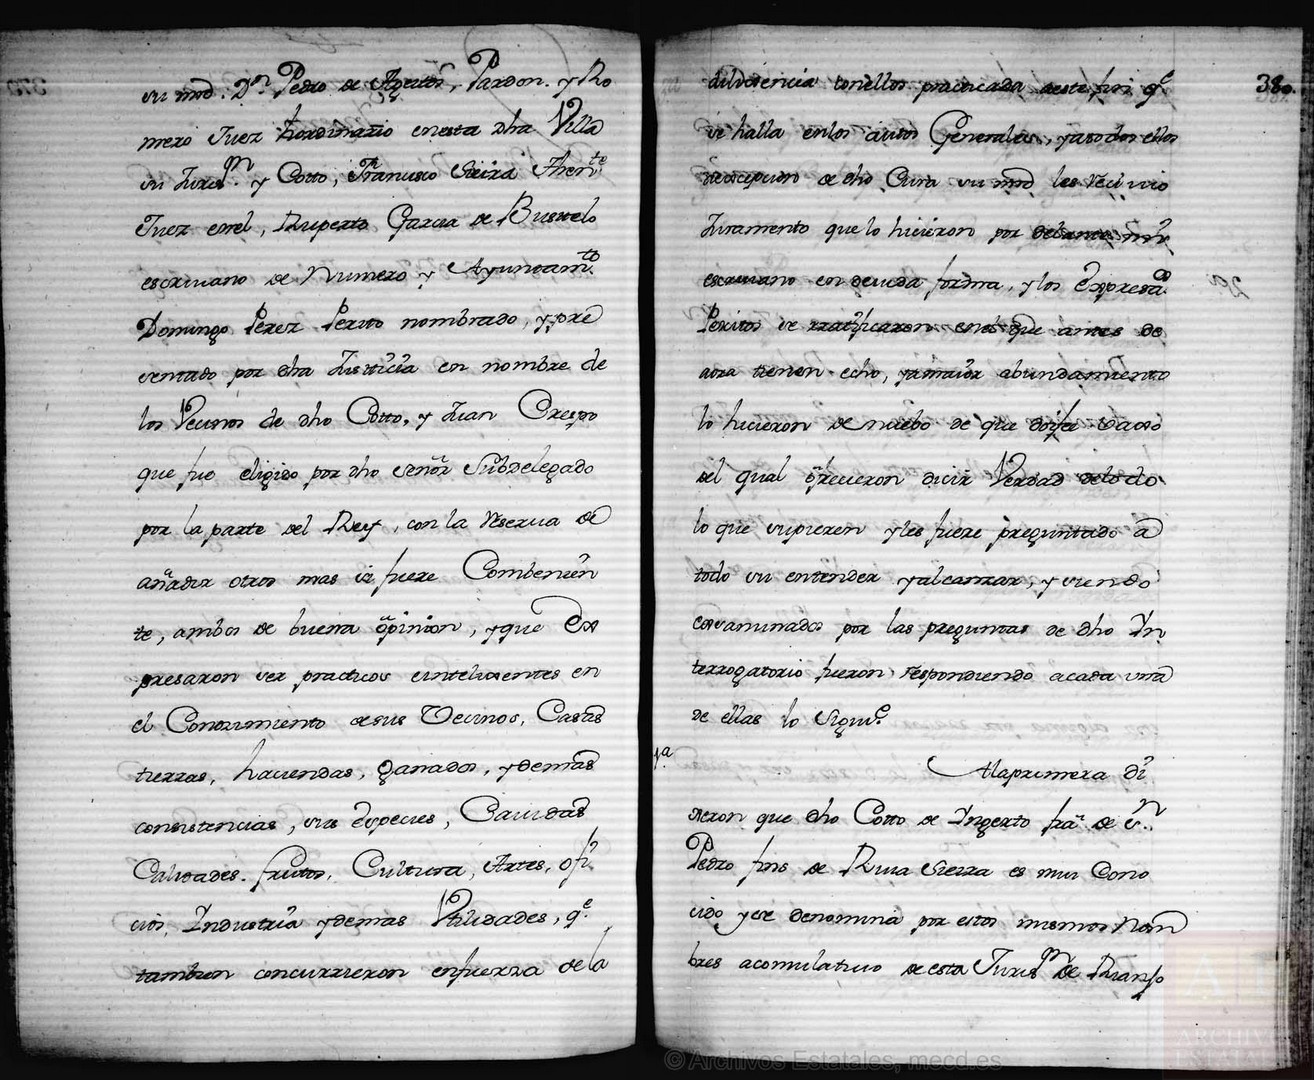 su md. Dn. Pedro de Aguiar, Pardon. y Ro
mero Juez hordinario enesta dha Villa
su Juris.on y Cotto, Franisco Sieira Thente
Juez enel, Ruperto Garcia de Bustelo
escriuano de Numero y Ayuntamto.
Domingo Perez Perito nombrado, ypre
sentado por dha Justicia en nombre de
los Vecinos de dho Cotto, y Juan Crespo
que fue eligido por dho señor Subdelegado
por la parte del Rey, con la reserua de
añadir otros mas si fuere Combenien
te, ambos de buena opinion, yque Ex
presaron ser practicos einteligentes en
el Conozimiento desus Vecinos, Casas
tierras, haciendas, ganados, ydemas
consistencias, sus Especies, Cauidas
Calidades. frutos, Cultura, Artes, ofi
cios, Industria ydemas Vtilidades, qe.
tambien concurrieron enfuerza dela
380.
diligencia conellos practicada aeste fin qe
se halla enlos autos Generales, yatodos ellos
aexcepcion de dho Cura su md les reciuio
Juramento que lo hicieron por delante mi
escriuano en deuida forma, y los Expresados
Peritos se rratificaron enel que antes de
aora tienen echo, yamaior abundamiento
lo hicieron de nuebo de que doyfee vajo
del qual ofrecieron decir Verdad detodo
lo que supieren yles fuere preguntado a
todo su entender yalcanzar, y siendo
esaminados por las preguntas de dho In
terrogatorio fueron respondiendo acada una
de ellas lo siguie.
1a.
Alaprimera di
xeron que dho Cotto de Ingerto fra. de Sn.
Pedro fins de Riua Sierra es mui Cono
cido yse denomina por estos mismos Nom
bres acomulatiuo de esta Jurison de Rianjo
© Archivos Estatales, mecd.es
ARCHIVOS
ESTATALES